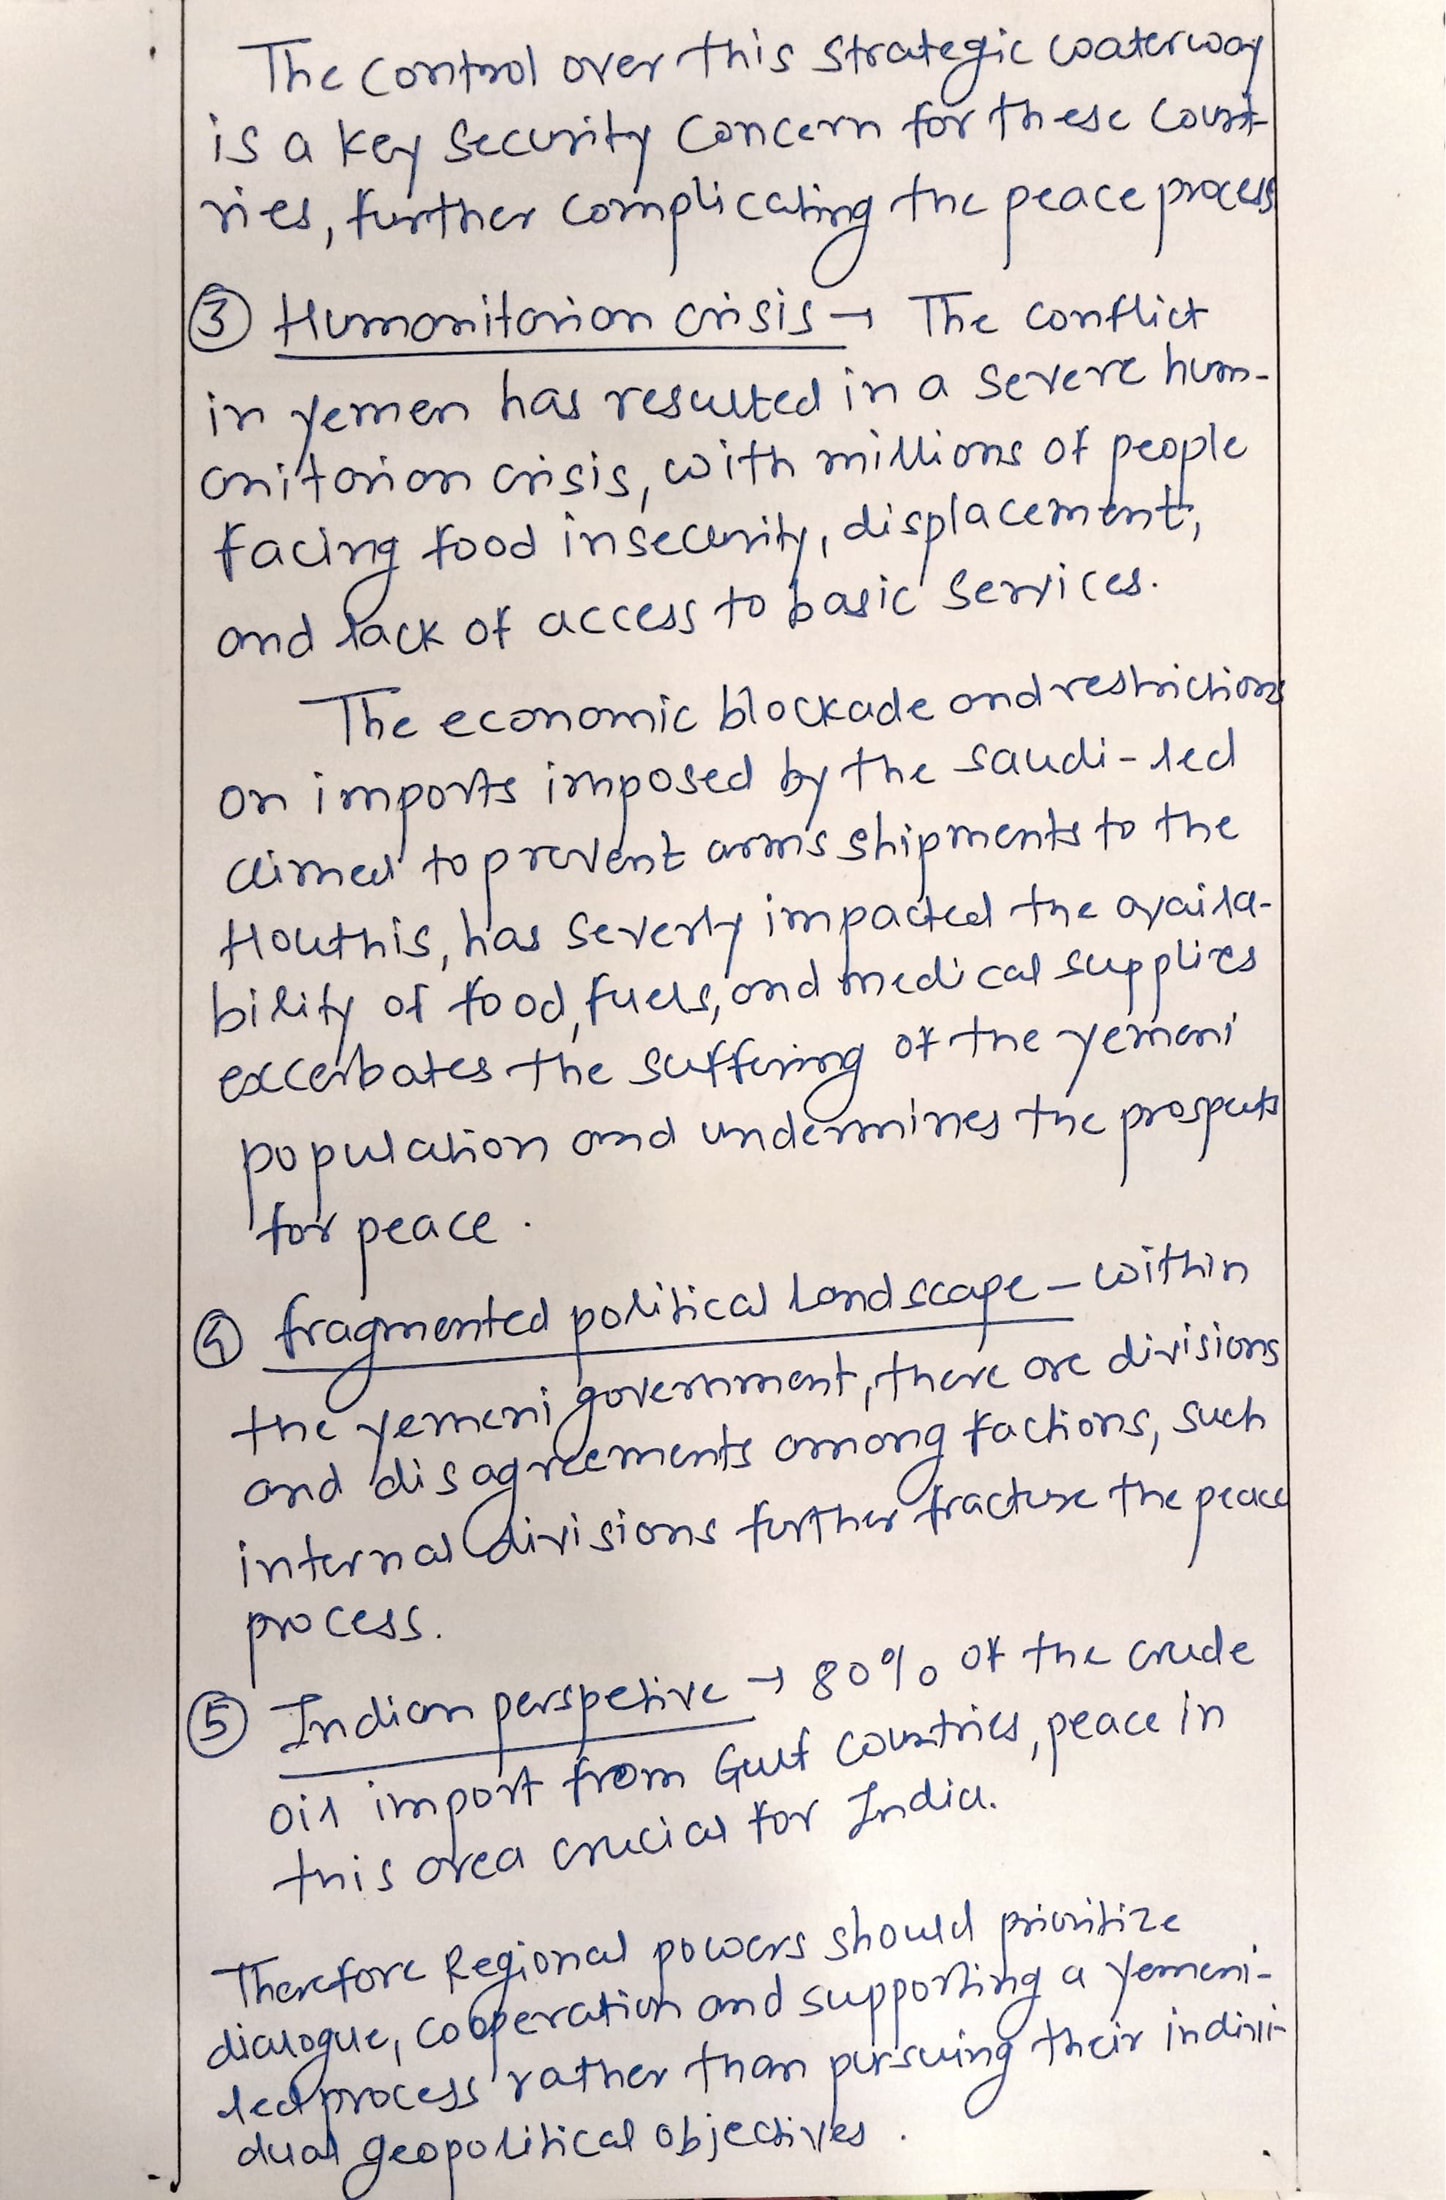 The control over this strategic waterway
is a key security concern for these count-
ries, further complicating the peace process
③ Humanitarian crisis → The conflict
in yemen has resulted in a severe hum-
anitarian crisis, with millions of people
facing food insecurity, displacement,
and lack of access to basic services.
The economic blockade and restrictions
on imports imposed by the saudi-led
aimed to prevent arms shipments to the
Houthis, has severly impacted the availa-
bility of food, fuels, and medical supplies
excerbates the suffering of the yemeni
population and undermines the prospects
for peace.
④ fragmented political landscape - within
the yemeni government, there are divisions
and disagreements among factions, such
internal divisions further fracture the peace
process.
⑤ Indian perspetive → 80% of the crude
oil import from Gulf countries, peace in
this area crucial for India.
Therefore Regional powers should prioritize
dialogue, cooperation and supporting a yemeni-
led process rather than pursuing their indivi-
dual geopolitical objectives.